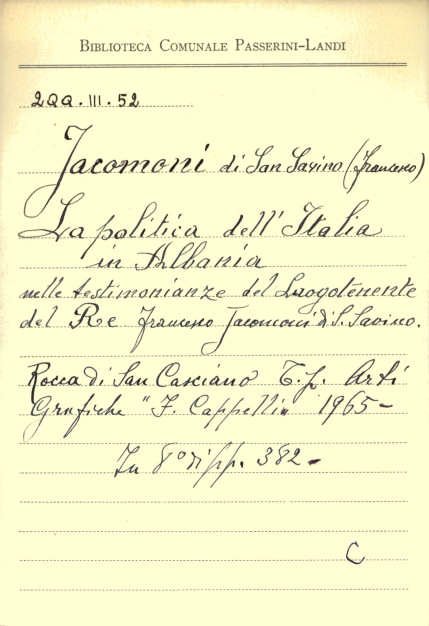 BIBLIOTECA COMUNALE PASSERINI-LANDI
2QQ.III.52
Jacomoni di San Savino (Francesco)
La politica dell'Italia
in Albania
nelle testimonianze del Luogotenente
del Re Francesco Jacomoni di S. Savino.
Rocca di San Casciano T.p. Arti
Grafiche "F. Cappelli" 1965-
In 8° di pp. 382-
C